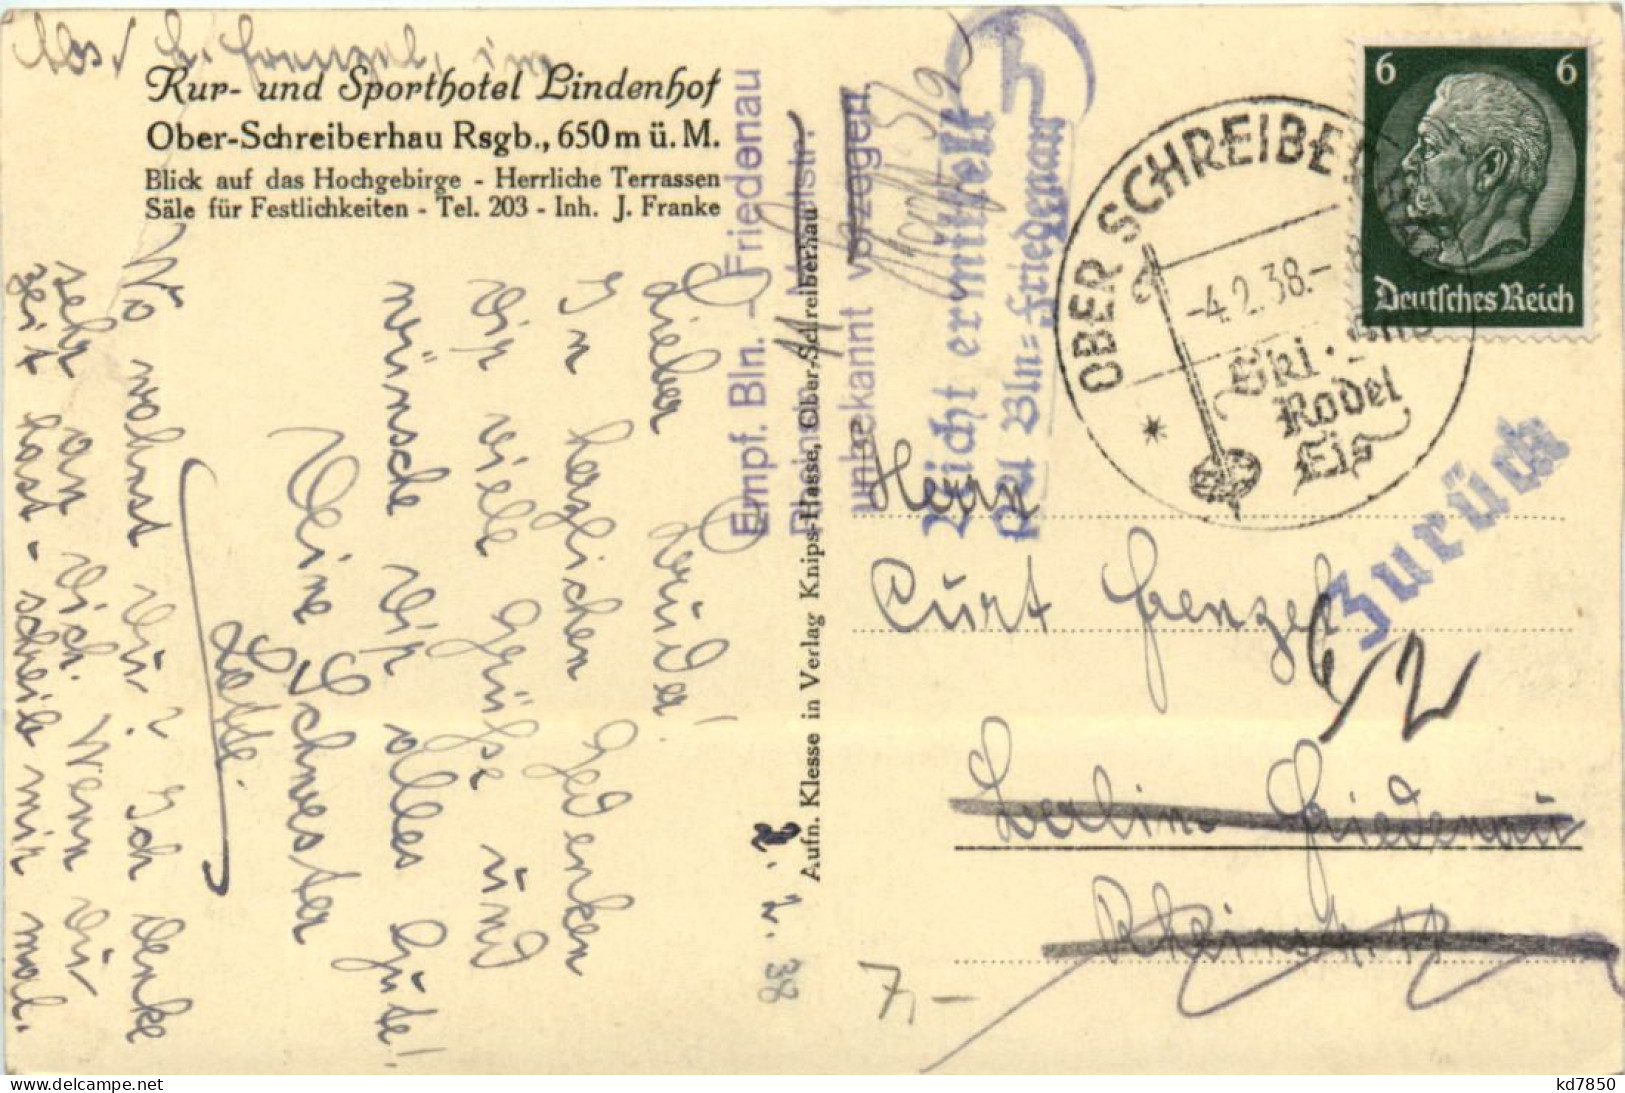 Abs./ L. Frenzel, im
Kur- und Sporthotel Lindenhof
Ober-Schreiberhau Rsgb., 650 m ü. M.
Blick auf das Hochgebirge - Herrliche Terrassen
Säle für Festlichkeiten - Tel. 203 - Inh. J. Franke
Lieber Bruder!
In herzlichen Gedenken
dir viele Grüße und
wünsche dir alles Gute!
Deine Schwester
Lotte.
Wo wohnst du? Ich denke
sehr an dich. Wenn du
Zeit hast - schreib mir mal.
2. 2. 38
Aufn. Klesse in Verlag Knips-Hasse, Ober-Schreiberhau
Empf. Bln. - Friedenau
11
unbekannt verzogen.
Nicht ermittelt
PA Bln-Friedenau
OBER SCHREIBERHAU
-4.2.38.-
Ski · und
Rodel
Eis
6 6
Deutsches Reich
Zurück
Herrn
Curt Frenzel
6/2
Berlin-Friedenau
Rheinstr. 11
7,-
www.delcampe.net
kd7850